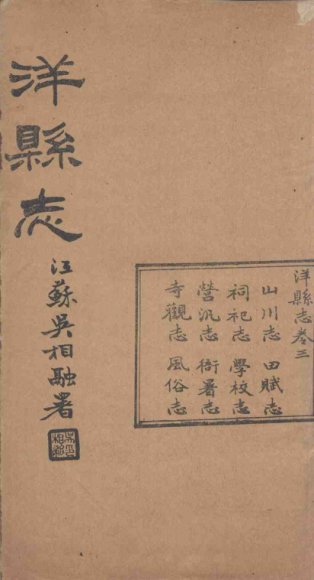 洋縣志
江蘇吳相融署
洋縣志卷三
山川志 田賦志
祠祀志 學校志
營汛志 衙署志
寺觀志 風俗志